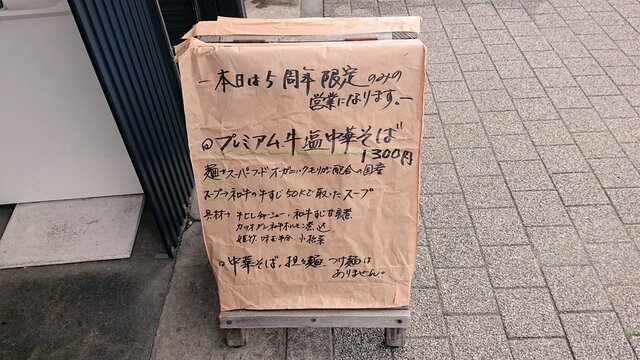 ー本日は5周年限定のみの
営業になります。ー
◎プレミアム牛塩中華そば
1300円
麺→スーパーフードオーガニックモリンガ配合の国産
スープ→和牛の牛すじ50Kで取ったスープ
具材→牛ヒレチャーシュー・和牛すじ甘煮
和牛ホルモン煮込
味玉半分・小松菜
◎中華そば、担々麺、つけ麺は
ありません。